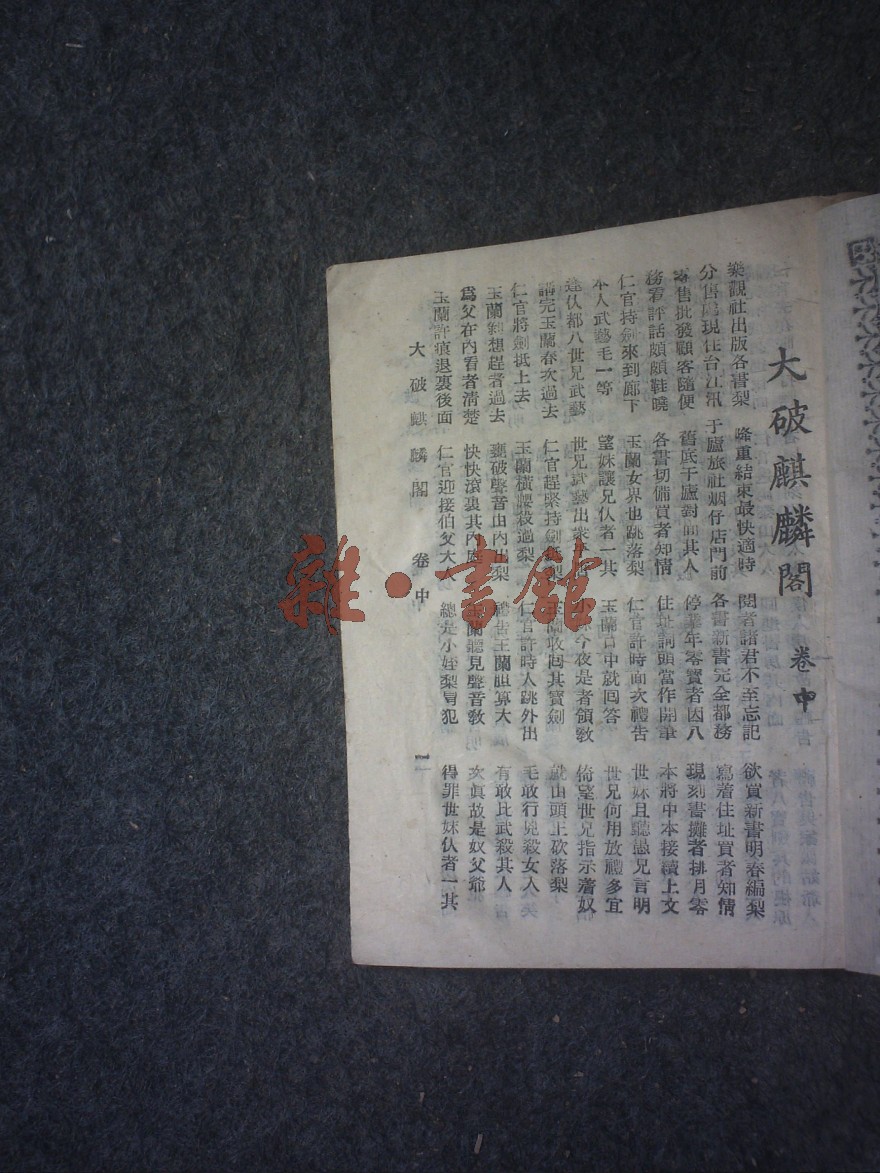 大破麒麟閣 卷中
樂觀社出版各書梨 隆重結束最快適時 閱者諸君不至忘記 欲買新書明春編梨
分售處現住台江汛 于廬旅社烟仔店門前 各書新書完全都務 寫着住址買者知情
零售批發顧客隨便 舊底于廬對面其人 停業年零賣者因八 現刻書攤者排月零
務看評話頗頗鞋曉 各書切備買者知情 住址詞頭當作開筆 本將中本接續上文
仁官持劍來到廊下 玉蘭女界也跳落梨 仁官許時面次禮告 世妹且聽愚兄言明
本人武藝毛一等 望妹讓兄仅者一其 玉蘭口中就回答 世兄何用放禮多宜
達仅都八世兄武藝 世兄武藝出衆 今夜是者領教 倚望世兄指示着奴
講完玉蘭春次過去 仁官趕緊持劍抵梨 玉蘭收回其寶劍 就山頭王砍落梨
仁官將劍抵上去 玉蘭橫腰殺過梨 仁官許時人跳外出 毛敢行兇殺女人
玉蘭細想趕者過去 聲音由內出梨 玉蘭胆算大 有敢比武殺其人
爲父在內看者清楚 快快滾裏其內庭 聽見聲音教 次眞故是奴父爺
玉蘭許痕退裏後面 仁官迎接伯父大人 總是小姪梨冒犯 得罪世妹仅者一其
大破麒麟閣 卷中 一
雜·書館